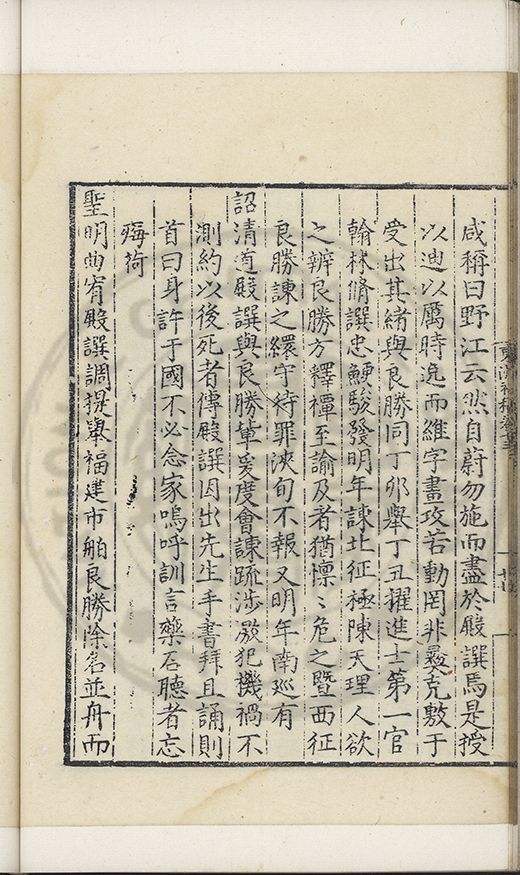 咸稱曰野江云然自蔚勿施而盡於殿譔焉是授
以迪以厲時逸而維字畫攻若動罔非彀克敷于
受出其緒與良勝同丁卯舉丁丑擢進士第一官
翰林脩譔忠鯁駿發明年諫北征極陳天理人欲
之辨良勝方釋禫至諭及者猶懍〻危之暨西征
良勝諫之繯守待罪浹旬不報又明年南巡有
詔清道殿譔與良勝輩爰度會諫疏涉激犯機禍不
測約以後死者傳殿譔因出先生手書拜且誦則
首曰身許于國不必念家嗚呼訓言藥石聽者忘
痗荷
聖明曲宥殿譔調提舉福建市舶良勝除名並舟而